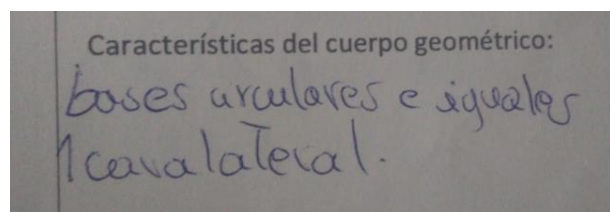 Características del cuerpo geométrico:
bases circulares e iguales
1 cara lateral.